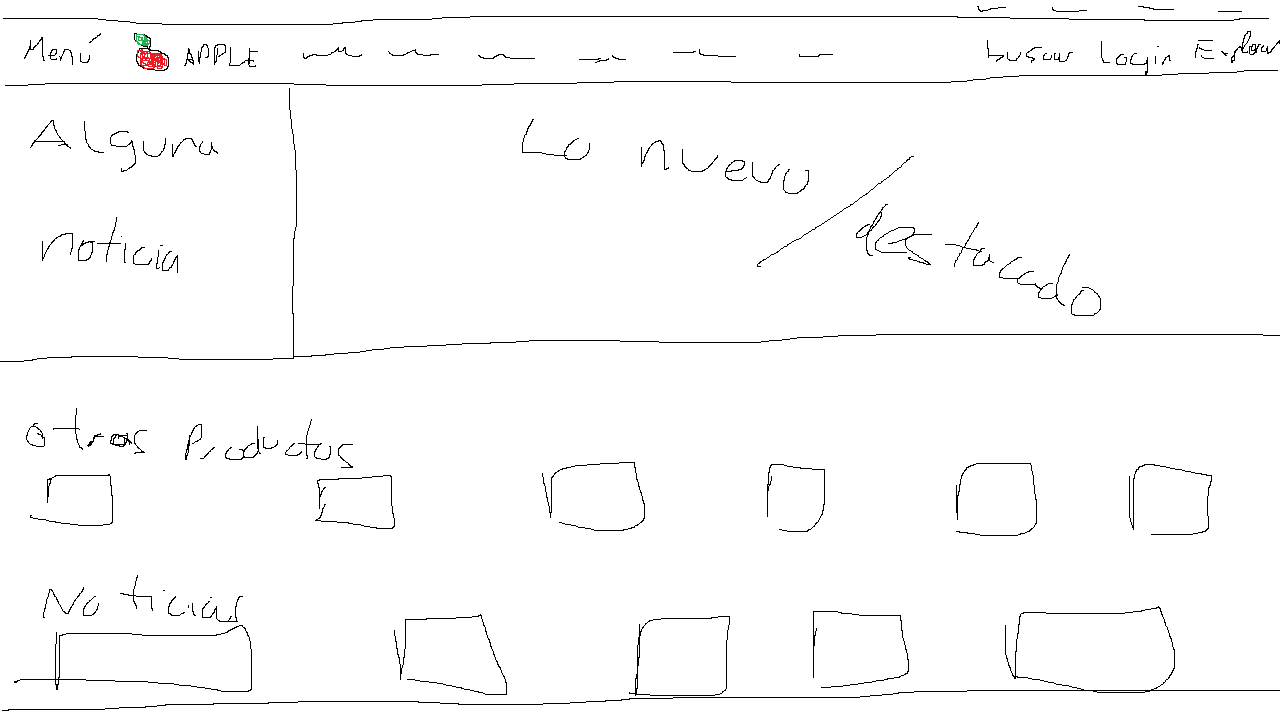 Menú APPLE buscar Login Explorar
Alguna
noticia
Lo nuevo / destacado
otros Productos
Noticias